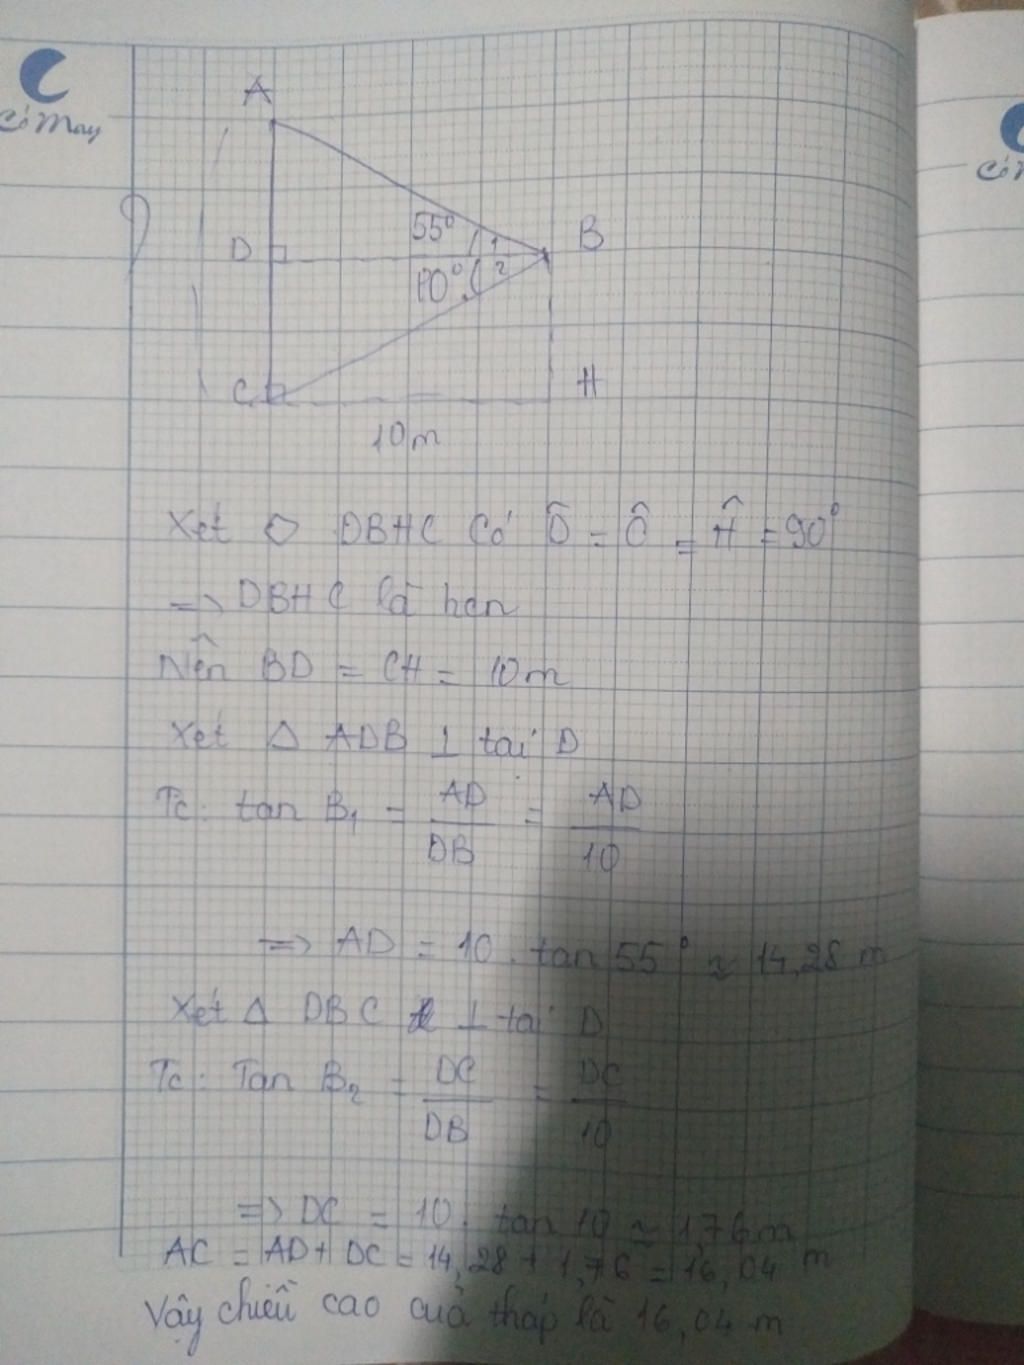 Cỏ May
A
55° 1 B
D
10° 2
C H
10m
Xét ◇ DBHC Có D̂ = Ĉ = Ĥ = 90°
=> DBHC là hcn
Nên BD = CH = 10m
Xét Δ ADB ⊥ tại D
Tc: tan B₁ = AD/DB = AD/10
=> AD = 10 . tan 55° ≈ 14,28 m
Xét Δ DBC ⊥ tại D
Tc: Tan B₂ = DC/DB = DC/10
=> DC = 10 . tan 10 ≈ 1,76m
AC = AD + DC = 14,28 + 1,76 = 16,04 m
Vậy chiều cao của tháp là 16,04 m